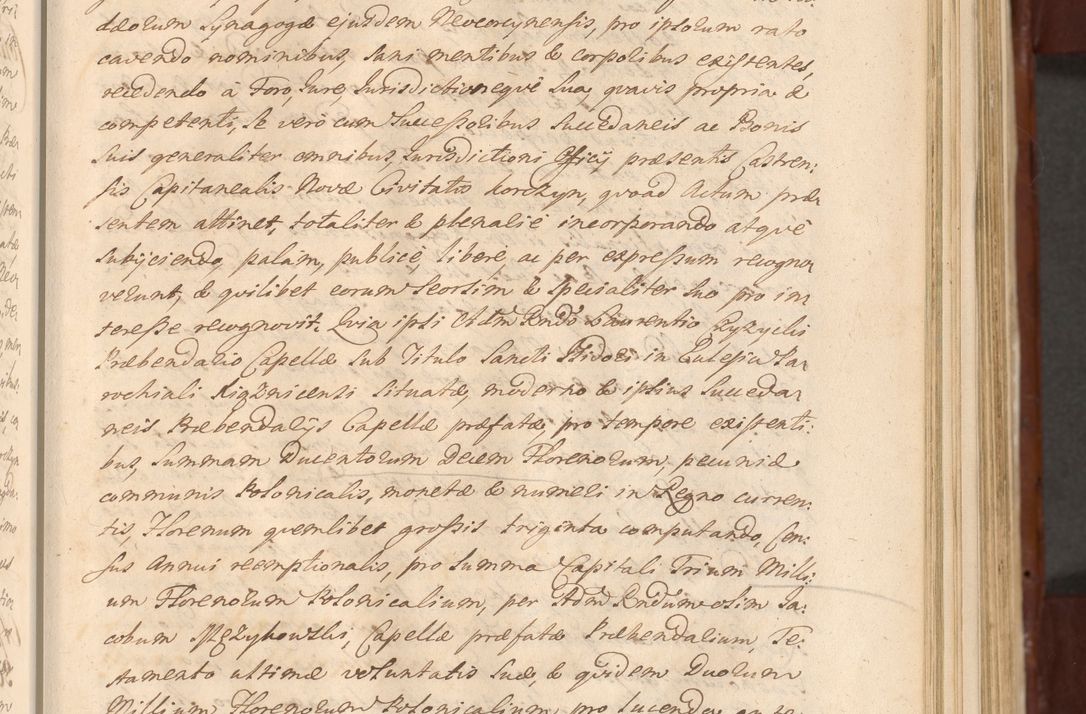 dæorum Synagogæ ejusdem Neocorcynensis, pro ipsorum rato
cavendo nominibus, Sani mentibus & corporibus existentes,
recedendo à Foro, Jure, Jurisdictioneqve Sua, qvavis propria &
competenti, Se verò cum Successoribus Succedaneis ac Bonis
Suis generaliter omnibus, Jurisdictioni Officij præsentis Castren:
sis Capitanealis Novæ Civitatis Korczyn, qvoad Actum præ
sentem attinet, totaliter & plenaliè incorporando atqvè
Subijciendo, palàm, publicè liberè ac per expressum recogno
verunt, & qvilibet eorum Seorsim & Specialiter Suo pro in
teresse recognovit. Qvia ipsi Adm Rndo Laurentio
Præbendario Capellæ Sub Titulo Sancti Isidori in Ecclesia Pa
rochiali Xiąznicensi Situatæ, moderno & ipsius Succeda
neis Præbendarijs Capellæ præfatæ pro tempore existenti:
bus, Summam Ducentorum Decem Florenorum, pecuniæ
communis Polonicalis, monetæ & numeri in Regno curren:
tis, Florenum qvemlibet grossis triginta computando, Cen:
sus Annui reemptionalis, pro Summa Capitali Trium Milli:
um Florenorum Polonicalium, per Adm Rndum olim Ja:
cobum Capellæ præfatæ Præbendarium, Te:
stamento ultimæ voluntatis Suæ, & qvidem Duorum
Millium Florenorum Polonicalium, pro lucenda